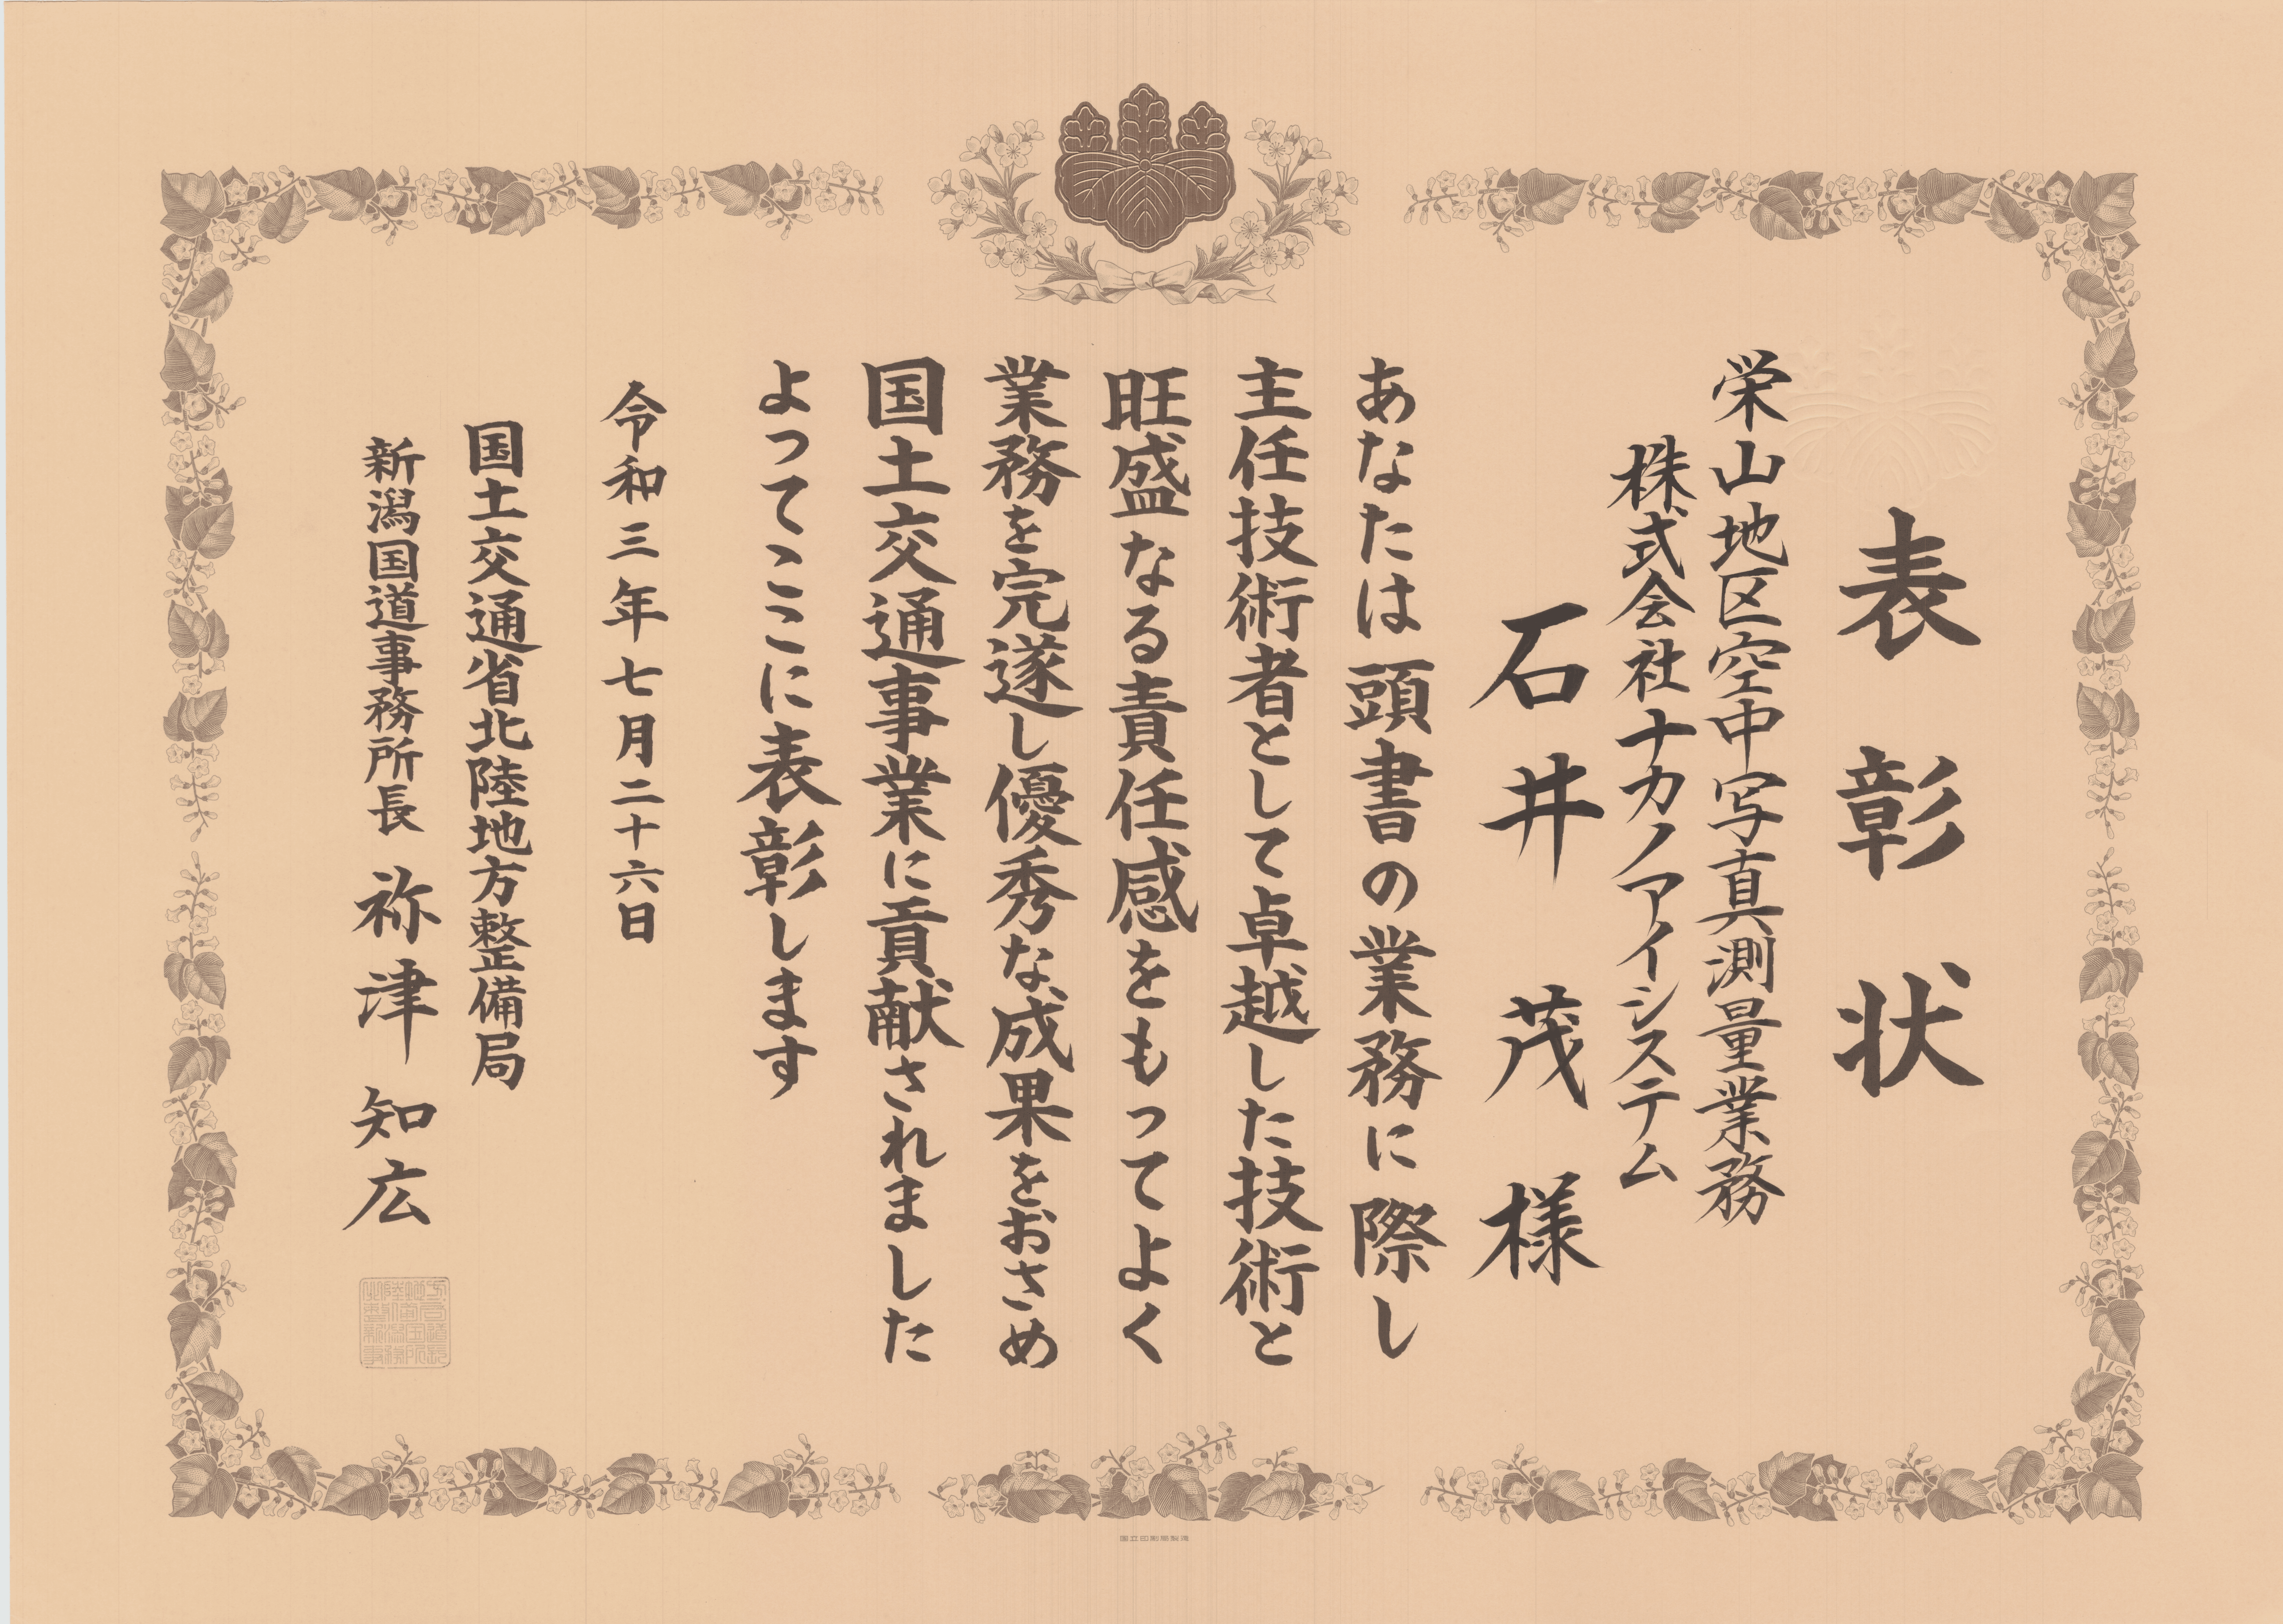 表彰状
栄山地区空中写真測量業務
株式会社ナカノアイシステム
石井茂様
あなたは頭書の業務に際し
主任技術者として卓越した技術と
旺盛なる責任感をもってよく
業務を完遂し優秀な成果をおさめ
国土交通事業に貢献されました
よってここに表彰します
令和三年七月二十六日
国土交通省北陸地方整備局
新潟国道事務所長 祢津知広
国立印刷局製造